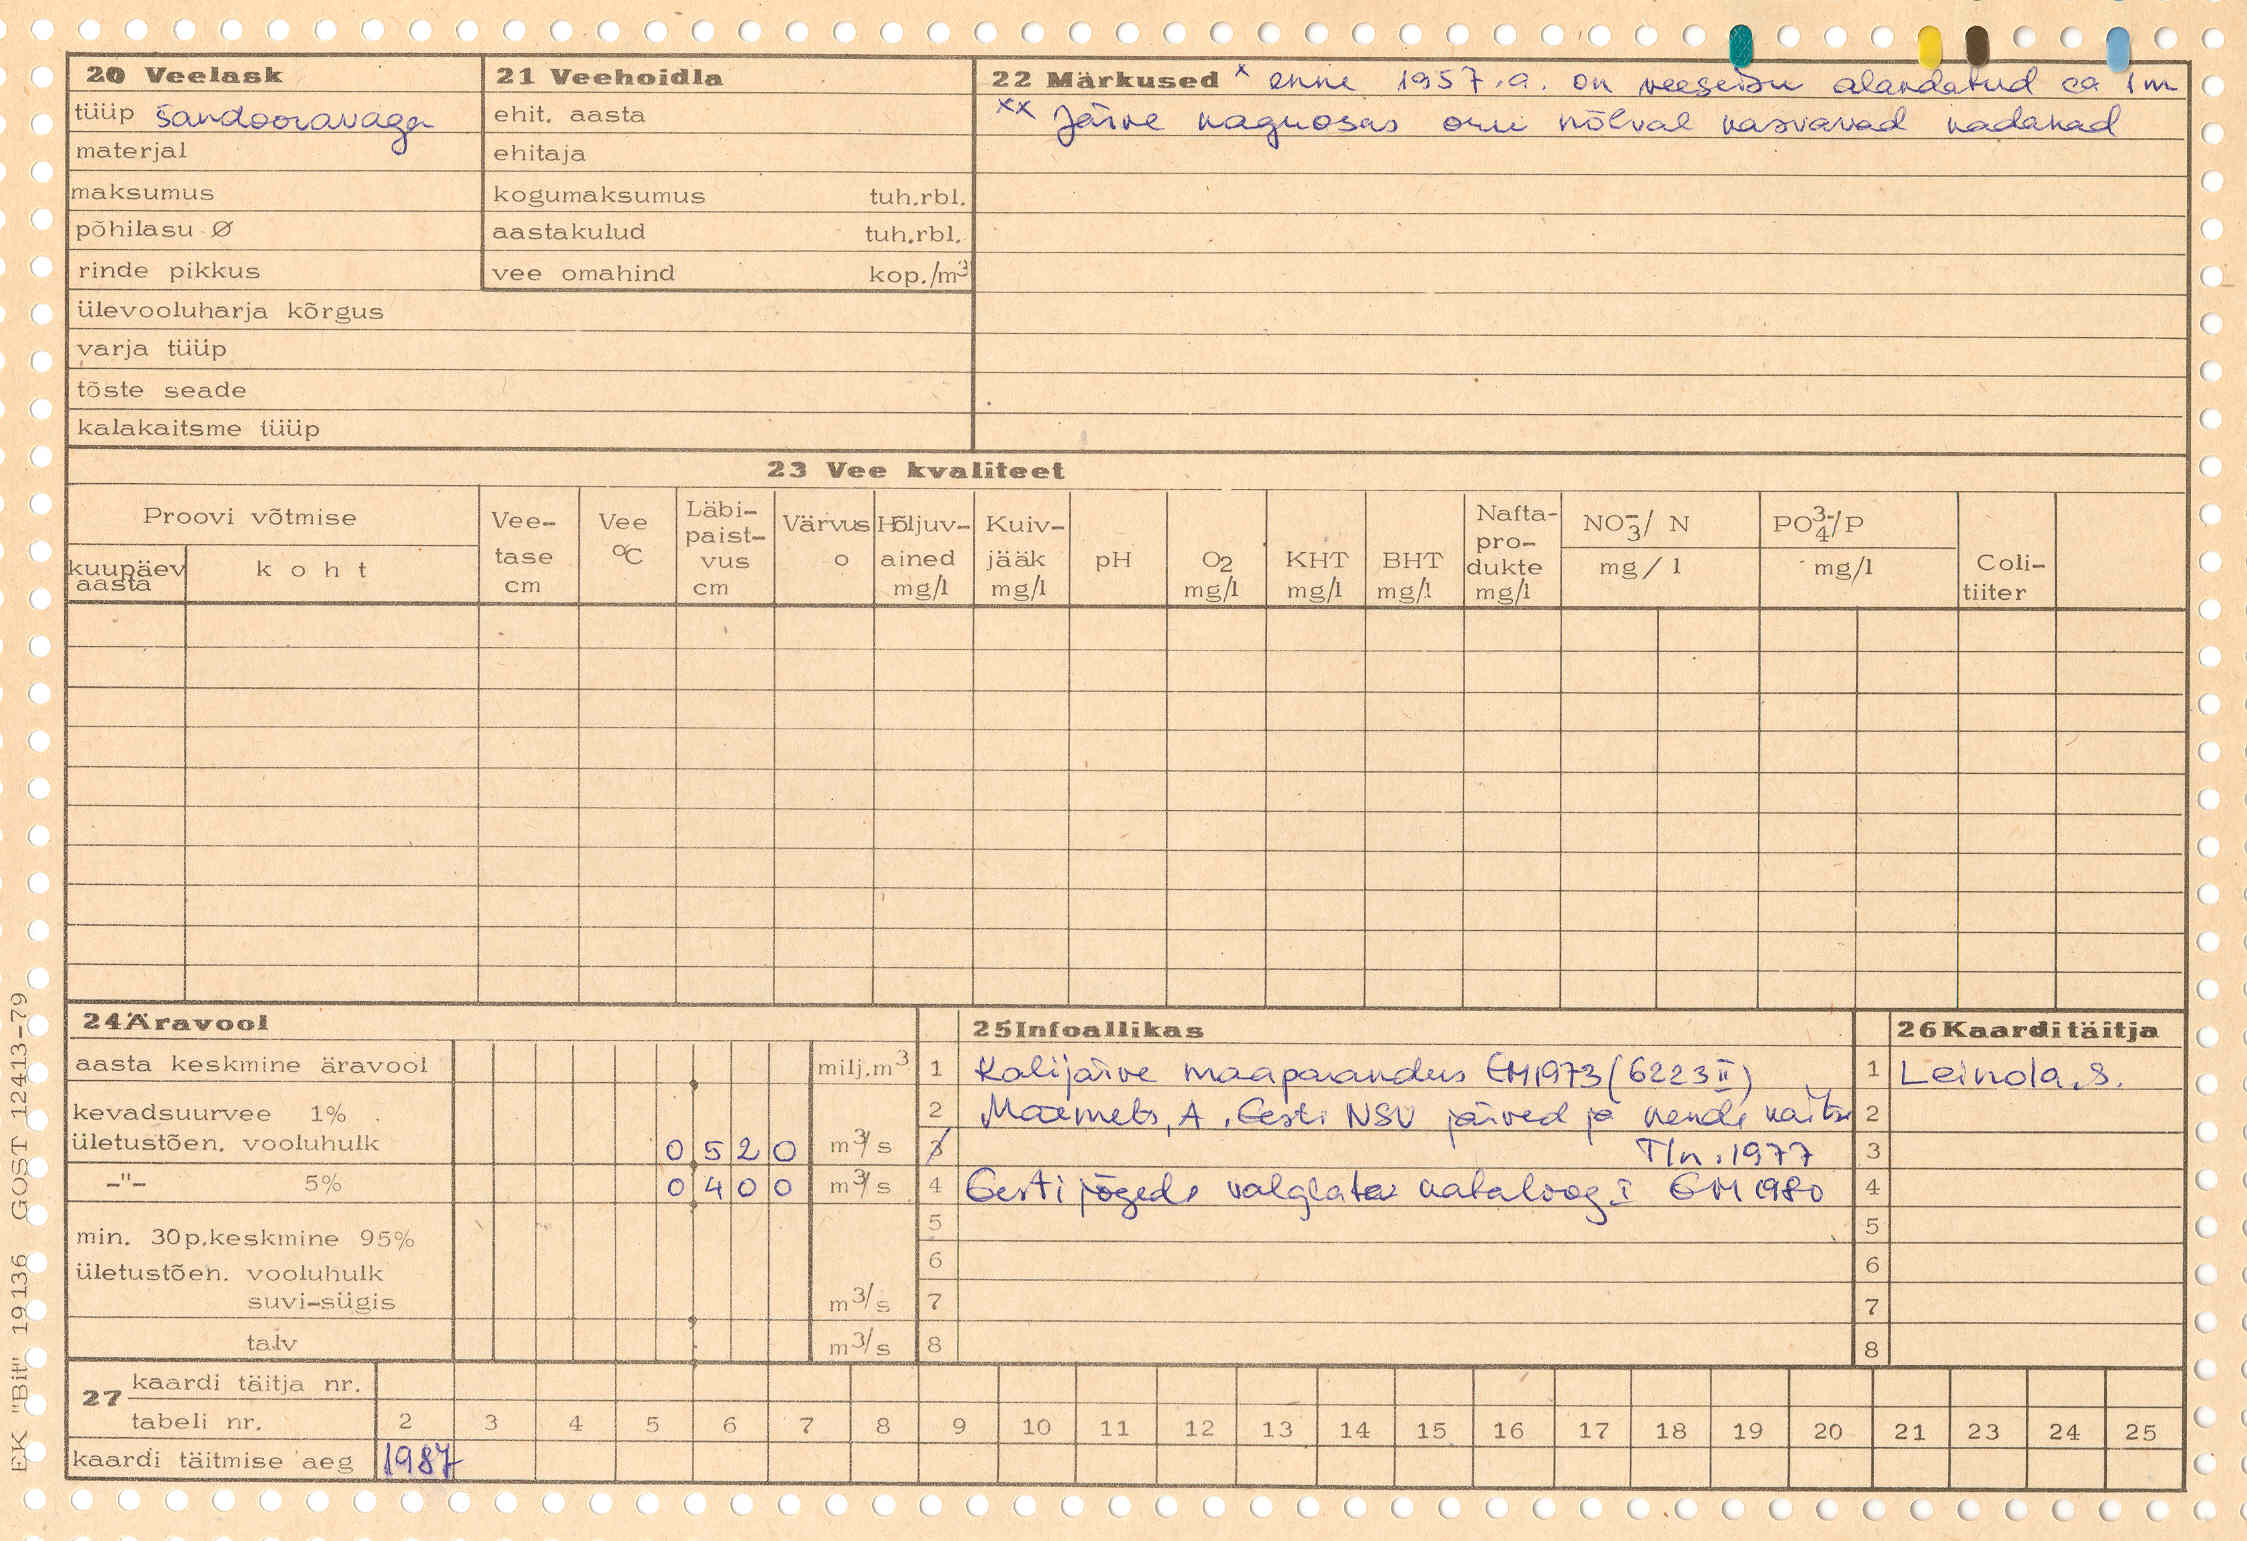 20 Veelask
tüüp šandooravaga
materjal
maksumus
põhilasu Ø
rinde pikkus
ülevooluharja kõrgus
varja tüüp
tõste seade
kalakaitsme tüüp
21 Veehoidla
ehit. aasta
ehitaja
kogumaksumus tuh.rbl.
aastakulud tuh.rbl.
vee omahind kop./m³
22 Märkused x enne 1957.a. on veeseisu alandatud ca 1m
xx Järve kaguosas oru nõlval kasvavad kadakad
23 Vee kvaliteet
Proovi võtmise
kuupäev aasta
koht
Vee-tase cm
Vee °C
Läbi-paist-vus cm
Värvus o
Hõljuv-ained mg/l
Kuiv-jääk mg/l
pH
O2 mg/l
KHT mg/l
BHT mg/l
Nafta-pro-dukte mg/l
NO3-/ N mg / l
PO4 3-/P mg/l
Coli-tiiter
24 Äravool
aasta keskmine äravool milj.m³
kevadsuurvee 1%
ületustõen. vooluhulk 0 5 2 0 m³/s
-"- 5% 0 4 0 0 m³/s
min. 30p.keskmine 95%
ületustõen. vooluhulk
suvi-sügis m³/s
talv m³/s
25 Infoallikas
1 Kalijärve maaparandus EM1973 (6223 II)
2 Mäemets, A. Eesti NSV järved ja nende kaitse
3 Tln. 1977
4 Eesti jõgede valglate kataloog I EM 1980
5
6
7
8
26 Kaarditäitja
1 Leinola, S.
2
3
4
5
6
7
8
27 kaardi täitja nr.
tabeli nr. 2 3 4 5 6 7 8 9 10 11 12 13 14 15 16 17 18 19 20 21 23 24 25
kaardi täitmise aeg 1987
EK "Bit" 19136 GOST 12413-79